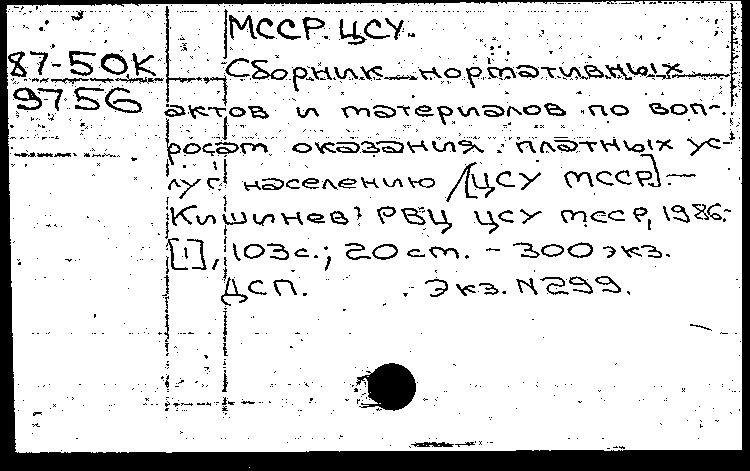 МССР. ЦСУ.
87-50К
9756
Сборник нормативных
актов и материалов по воп-
росам оказания платных ус-
луг населению / [ЦСУ МССР]. —
Кишинев: РВЦ ЦСУ МССР, 1986.-
[1], 103с.; 20 см. - 300 экз.
ДСП. Экз. N299.